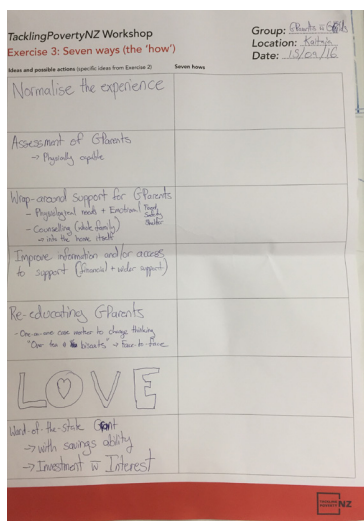 TacklingPovertyNZ Workshop
Exercise 3: Seven ways (the 'how')
Group: GParents
Location: Kaitaia
Date: 15/09/16
Ideas and possible actions (specific ideas from Exercise 2)
Seven hows
Normalise the experience
Assessment of GParents
→ Physically capable
Wrap-around support for GParents
- Physiological needs + Emotional Food
Safety
Shelter
- Counselling (whole family)
→ into the home itself
Improve information and/or access
to support (financial + wider support)
Re-educating GParents
- One-on-one case mentor to change thinking
"Over tea & biscuits" → face-to-face
LOVE
Ward-of-the-state Grant
→ with savings ability
→ Investment w Interest
TACKLING
POVERTY NZ